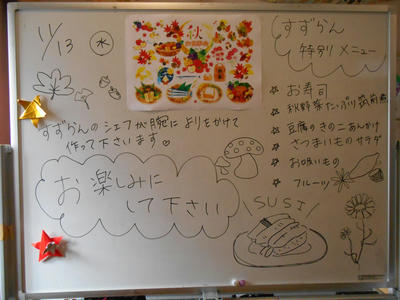 11/13 ㊌
秋
すずらん
特別メニュー
☆ お寿司
☆ 秋野菜たっぷり筑前煮
☆ 豆腐のきのこあんかけ
☆ さつまいもサラダ
☆ お吸いもの
☆ フルーツ
すずらんのシェフが腕によりをかけて
作って下さいます♡
お楽しみに
して下さい
SUSI